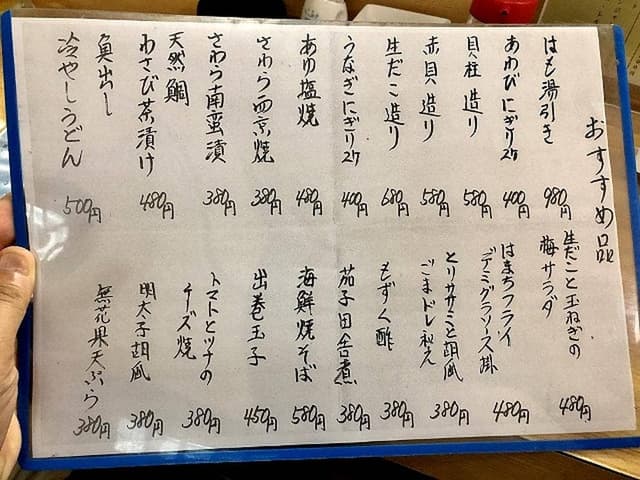 おすすめ品
はも湯引き 980円
あわびにぎり2ケ 400円
貝柱造り 580円
赤貝造り 580円
生だこ造り 680円
うなぎにぎり2ケ 400円
あゆ塩焼 480円
さわら西京焼 380円
さわら南蛮漬 380円
天然鯛
わさび茶漬け 480円
魚出し
冷やしうどん 500円
生だこと玉ねぎの
梅サラダ 480円
はまちフライ
デミグラソース掛 480円
とりササミと胡瓜
ごまドレ和え 380円
もずく酢 380円
茄子田舎煮 380円
海鮮焼そば 580円
出巻玉子 450円
トマトとツナの
チーズ焼 380円
明太子胡瓜 380円
無花果天ぷら 380円